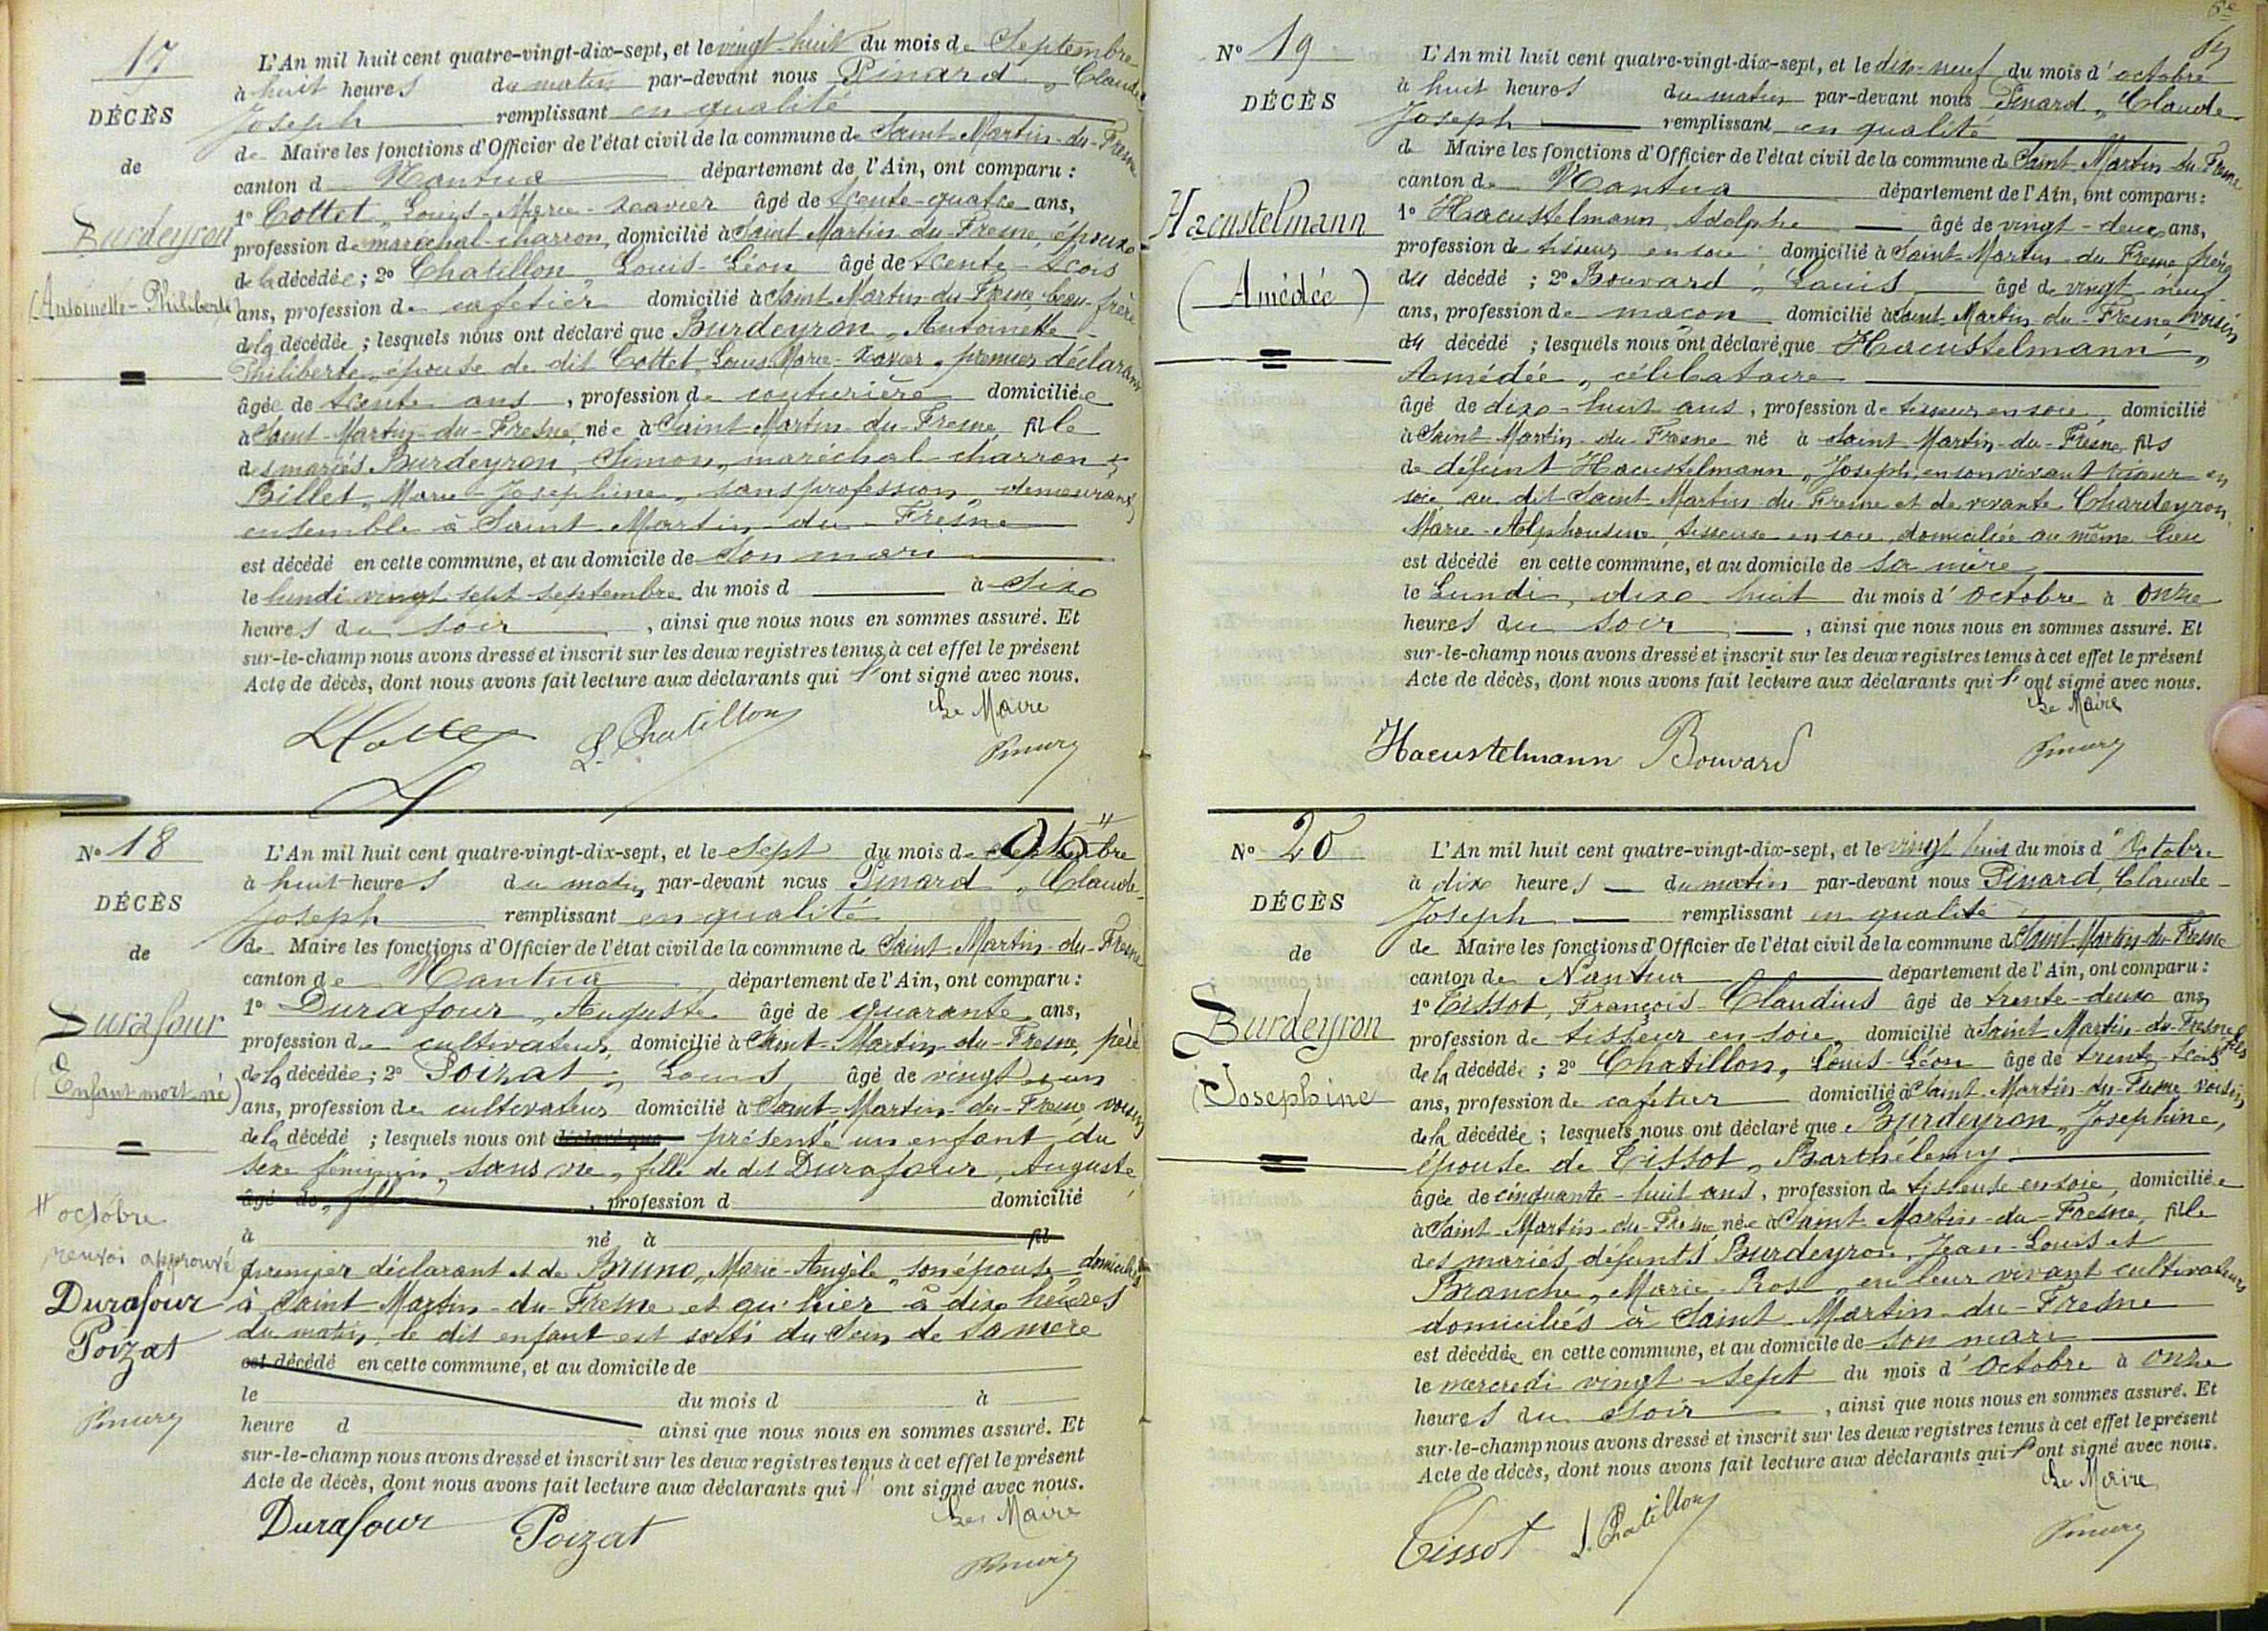 17
DÉCÈS
de
Burdeyron
(Antoinette-Philiberte)
L'An mil huit cent quatre-vingt-dix-sept, et le vingt-huit du mois de Septembre
à huit heures du matin par-devant nous Pinard, Claude
Joseph remplissant en qualité
de Maire les fonctions d'Officier de l'état civil de la commune de Saint-Martin-du-Fresne
canton de Nantua département de l'Ain, ont comparu :
1º Cottet, Louis-Marie-Xavier âgé de trente-quatre ans,
profession de maréchal-charron, domicilié à Saint Martin-du-Fresne, époux
de la décédée ; 2º Chatillon Louis-Léon âgé de trente-trois
ans, profession de cafetier domicilié à Saint Martin-du-Fresne, beau-frère
de la décédée ; lesquels nous ont déclaré que Burdeyron, Antoinette-
Philiberte, épouse de dit Cottet, Louis Marie-Xavier, premier déclarant
âgée de trente ans, profession de couturière domiciliée
à Saint-Martin-du-Fresne, née à Saint Martin-du-Fresne fille
des mariés Burdeyron, Simon, maréchal-charron &
Billet, Marie-Joséphine, sans profession, demeurant
ensemble à Saint-Martin-du-Fresne
est décédé en cette commune, et au domicile de son mari
le lundi vingt sept septembre du mois d à six
heures du soir, ainsi que nous nous en sommes assuré. Et
sur-le-champ nous avons dressé et inscrit sur les deux registres tenus à cet effet le présent
Acte de décès, dont nous avons fait lecture aux déclarants qui l'ont signé avec nous.
Le Maire
L. Chatillon
Nº 18
DÉCÈS
de
Durafour
(Enfant mort-né)
" octobre
renvoi approuvé
Durafour
Poizat
L'An mil huit cent quatre-vingt-dix-sept, et le Sept du mois de "
à huit heures du matin, par-devant nous Pinard, Claude-
Joseph remplissant en qualité
de Maire les fonctions d'Officier de l'état civil de la commune de Saint-Martin-du-Fresne
canton de Nantua département de l'Ain, ont comparu :
1º Durafour, Auguste âgé de quarante ans,
profession de cultivateur, domicilié à Saint-Martin-du-Fresne, père
de la décédée ; 2º Poizat, Louis âgé de vingt-un
ans, profession de cultivateur domicilié à Saint-Martin-du-Fresne, voisin
de la décédé ; lesquels nous ont déclaré que présenté un enfant du
sexe féminin, sans vie, fille de dit Durafour, Auguste,
âgé de, fille, profession d domicilié
à né à fil
premier déclarant et de Bruno, Marie-Angèle, son épouse, domiciliés
à Saint Martin-du-Fresne et qu'hier à dix heures
du matin, le dit enfant est sorti du sein de sa mère
est décédé en cette commune, et au domicile de
le du mois d à
heure d ainsi que nous nous en sommes assuré. Et
sur-le-champ nous avons dressé et inscrit sur les deux registres tenus à cet effet le présent
Acte de décès, dont nous avons fait lecture aux déclarants qui l'ont signé avec nous.
Le Maire
Durafour Poizat
Nº 19
DÉCÈS
Haeustelmann
(Amédée)
L'An mil huit cent quatre-vingt-dix-sept, et le dix-neuf du mois d'octobre
à huit heures du matin par-devant nous Pinard, Claude-
Joseph remplissant en qualité
de Maire les fonctions d'Officier de l'état civil de la commune de Saint-Martin-du-Fresne
canton de Nantua département de l'Ain, ont comparu :
1º Haeustelmann, Adolphe âgé de vingt-deux ans,
profession de tisseur en soie domicilié à Saint Martin-du-Fresne frère
du décédé ; 2º Bouvard, Louis âgé de vingt-neuf
ans, profession de maçon domicilié à Saint-Martin-du-Fresne voisin
du décédé ; lesquels nous ont déclaré que Haeustelmann,
Amédée, célibataire
âgé de dix-huit ans, profession de tisseur en soie, domicilié
à Saint Martin-du-Fresne né à Saint Martin-du-Fresne, fils
de défunt Haeustelmann, Joseph, en son vivant tisseur en
soie au dit Saint-Martin-du-Fresne et de vivante Chardeyron,
Marie-Alphonsine, tisseuse en soie, domiciliée au même lieu
est décédé en cette commune, et au domicile de sa mère
le Lundi, dix-huit du mois d'octobre à onze
heures du soir, ainsi que nous nous en sommes assuré. Et
sur-le-champ nous avons dressé et inscrit sur les deux registres tenus à cet effet le présent
Acte de décès, dont nous avons fait lecture aux déclarants qui l'ont signé avec nous.
Le Maire
Haeustelmann Bouvard
Nº 20
DÉCÈS
de
Burdeyron
(Josephine
L'An mil huit cent quatre-vingt-dix-sept, et le vingt huit du mois d'Octobre
à dix heures du matin par-devant nous Pinard, Claude-
Joseph remplissant en qualité
de Maire les fonctions d'Officier de l'état civil de la commune de Saint-Martin-du-Fresne
canton de Nantua département de l'Ain, ont comparu :
1º Tissot, François-Claudius âgé de trente-deux ans,
profession de tisseur en soie, domicilié à Saint Martin-du-Fresne fils
de la décédée ; 2º Chatillon, Louis-Léon âgé de trente-trois
ans, profession de cafetier domicilié à Saint-Martin-du-Fresne voisin
de la décédée ; lesquels nous ont déclaré que Burdeyron, Joséphine,
épouse de Tissot, Barthélemy
âgée de cinquante-huit ans, profession de tisseuse en soie, domiciliée
à Saint-Martin-du-Fresne, née à Saint-Martin-du-Fresne, fille
des mariés défunts Burdeyron, Jean-Louis et
Branche, Marie-Rose, en leur vivant cultivateurs
domiciliés à Saint-Martin-du-Fresne
est décédée en cette commune, et au domicile de son mari
le mercredi vingt-sept du mois d'octobre à onze
heures du soir, ainsi que nous nous en sommes assuré. Et
sur-le-champ nous avons dressé et inscrit sur les deux registres tenus à cet effet le présent
Acte de décès, dont nous avons fait lecture aux déclarants qui l'ont signé avec nous.
Le Maire
Tissot L. Chatillon